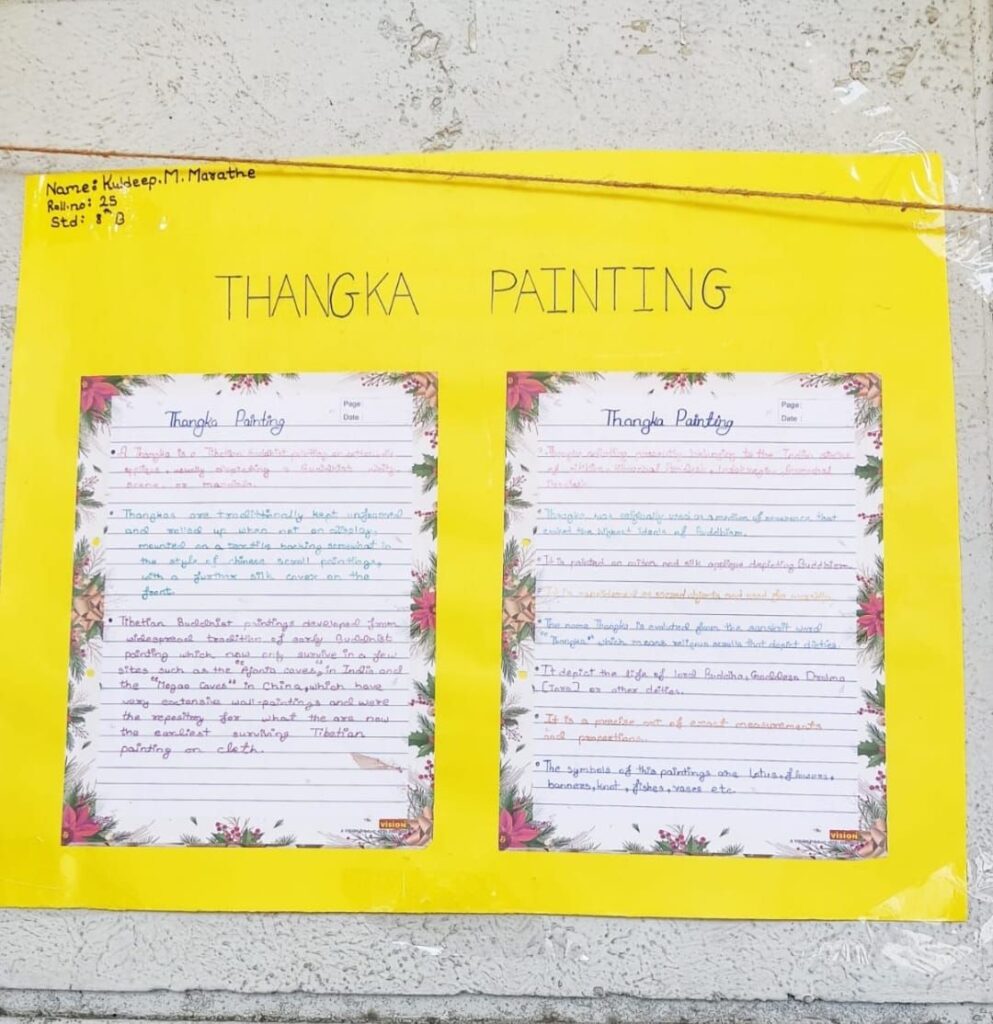 Name: Kuldeep.M.Marathe
Roll.no: 25
Std: 8th B
THANGKA PAINTING
Page:
Date:
Thangka Painting
• A Thangka is a Tibetian Buddhist painting on cotton, silk
applique, usually depicting a Buddhist deity,
scene, or mandala.
• Thangkas are traditionally kept unframed
and rolled up when not on display,
mounted on a textile backing somewhat in
the style of chinese scroll paintings,
with a further silk cover on the
front.
• Tibetian Buddhist paintings developed from
widespread tradition of early Buddhist
painting which now only survive in a few
sites such as the "Ajanta caves", in India and
the "Mogao Caves" in China, which have
very extensive wall-paintings and were
the repository for what the are now
the earliest surviving Tibetian
painting on cloth.
VISION
Page:
Date:
Thangka Painting
• Thangka painting presently belonging to the Indian states
of sikkim, Himachal Pradesh, Ladakh region, Arunachal
Pradesh.
• Thangka was originally used as a medium of reverence that
evoked the highest ideals of Buddhism.
• It is painted on cotton and silk applique depicting Buddhism.
• It is considered as sacred objects and used for
• The name Thangka is evoluted from the sanskrit word
"Thangka" which means religious scrolls that depict deities.
• It depict the life of lord Buddha, Goddess Drolma
[Tara] or other deities.
• It is a precise art of exact measurements
and proportions.
• The symbols of this paintings are Lotus, flowers,
banners, knot, fishes, vases etc.
VISION